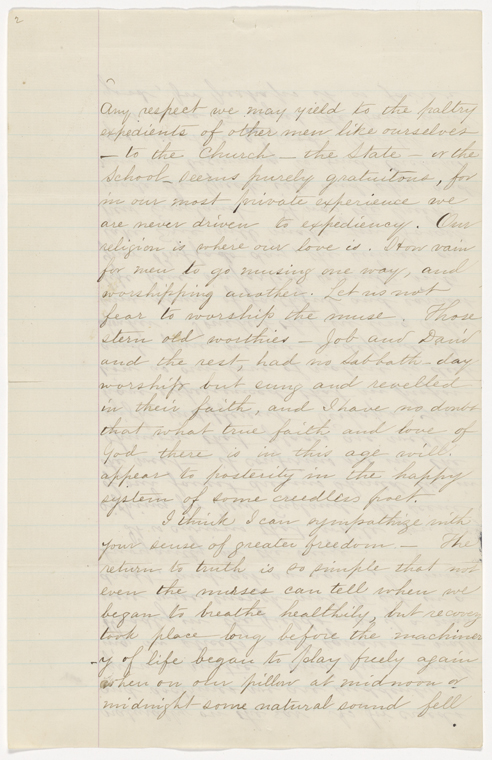 2
Any respect we may yield to the paltry
expedients of other men like ourselves
– to the Church – the State – or the
School – seems purely gratuitous, for
in our most private experience we
are never driven to expediency. Our
religion is where our love is. How vain
for men to go musing one way, and
worshipping another. Let us not
fear to worship the muse. Those
stern old worthies – Job and David
and the rest, had no Sabbath-day
worship but sung and revelled
in their faith, and I have no doubt
that what true faith and love of
God there is in this age will
appear to posterity in the happy
system of some creedless poet.
I think I can sympathize with
your sense of greater freedom – The
return to truth is so simple that not
even the nurses can tell when we
began to breathe healthily, but recovery
took place long before the machiner
-y of life began to play freely again
when on our pillow at midnoon or
midnight some natural sound fell